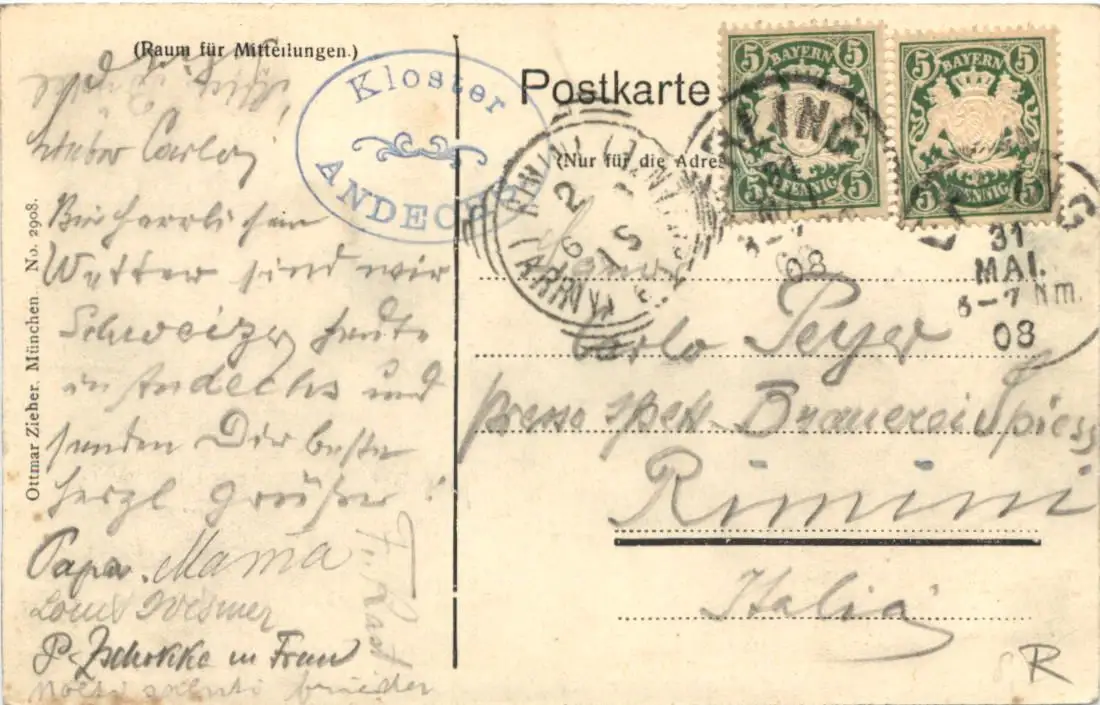 (Raum für Mitteilungen.)
Kloster
ANDECHS
Postkarte
(Nur für die Adres
BAYERN
5 5
5 PFENNIG 5
BAYERN
5 5
5 PFENNIG 5
RIMINI
2 6
31
MAI.
6-7 Nm.
08
08
Ottmar Zieher, München. No. 2908.
Carlo,
Bei herrlichem
Wetter sind wir
Schweizer heute
in Andechs und
senden Dir beste
herzl Grüße!
Papa. Mama
Louis
P. Zschokke u Frau
molti saluti
Carlo Peyer
presso Brauerei Spiess
Rimini
Italia
R